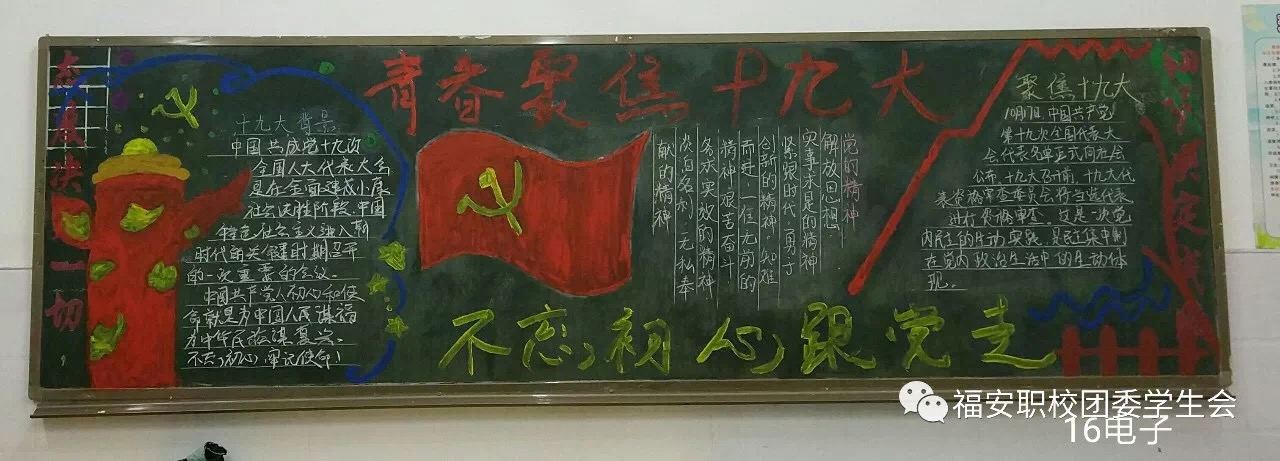 态度决定一切
青春聚焦十九大
十九大背景
中国共产党十九次
全国人大代表大会
是在全面建成小康
社会决胜阶段、中国
特色社会主义进入新
时代的关键时期召开
的一次重要的会议。
中国共产党人初心和使
命就是为中国人民谋福
为中华民族谋复兴。
不忘初心,牢记使命!
党的精神
解放思想、
实事求是的精神
紧跟时代、勇于
创新的精神、知难
而进、一往无前的
精神、艰苦奋斗
务求实效的精神
淡泊名利、无私奉
献的精神
聚焦十九大
中国共产党
第十九次全国代表大
会代表名单正式向社会
公布,十九大召开前,十九大代
表资格审查委员会将当选代表
进行资格审查,这是一次党
内民主的生动实践,是民主集中制
在党内政治生活中的生动体
现。
细节决定成败
不忘初心,跟党走
福安职校团委学生会
16电子